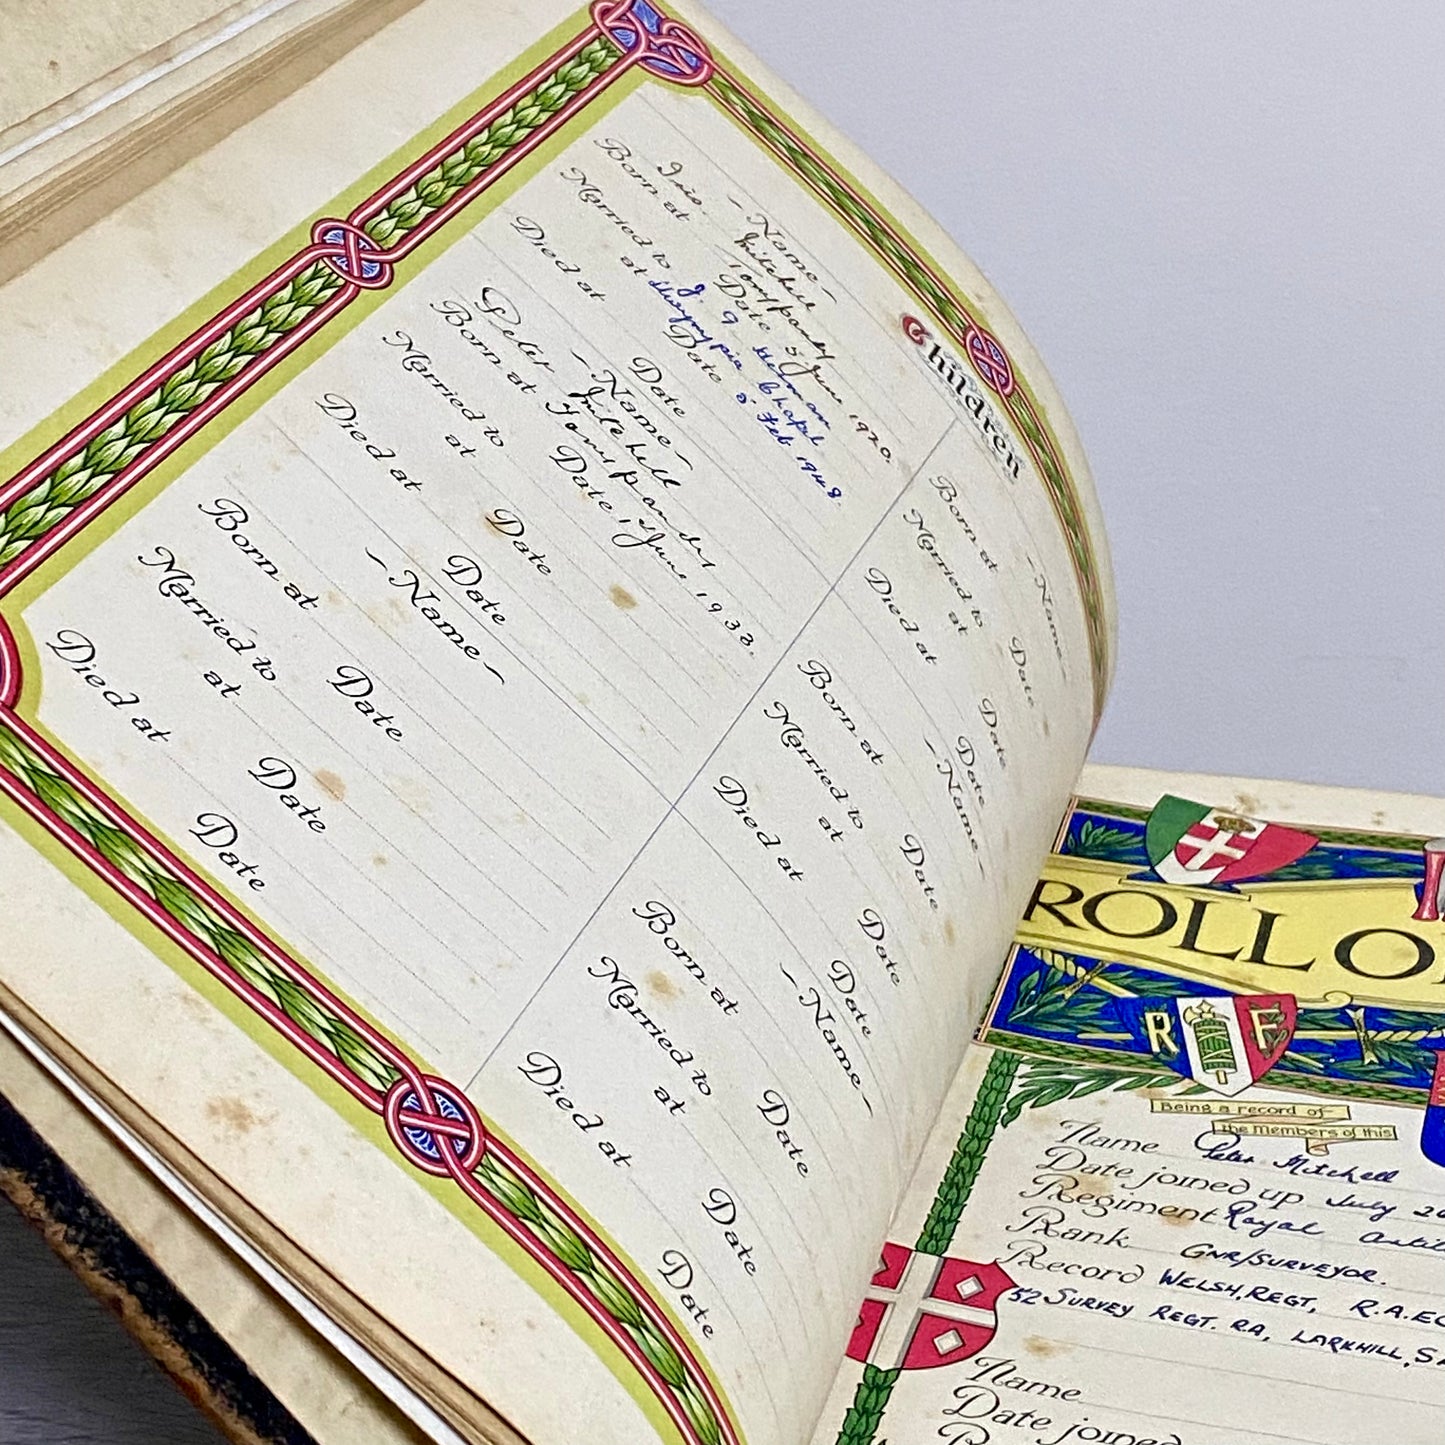 Children
– Name –
Iris. Mitchell
Born at Tonypandy
Date 5 June 1920.
Married to J. G.
at Chapel
Date Feb 1948.
Died at
Date
– Name –
Peter Mitchell
Born at Tonypandy
Date 15 June 1933.
Married to
at Date
Died at Date
– Name –
Born at
Date
Married to
at Date
Died at Date
– Name –
Born at
Date
Married to
at Date
Died at Date
– Name –
Born at
Date
Married to
at Date
Died at Date
– Name –
Born at
Date
Married to
at Date
Died at Date
ROLL O
R F
Being a record of
the members of this
Name Peter Mitchell
Date joined up July
Regiment Royal
Rank GNR/SURVEYOR.
Record WELSH, REGT, R.A.
52 SURVEY REGT. RA, LARKHILL,
Name
Date joined